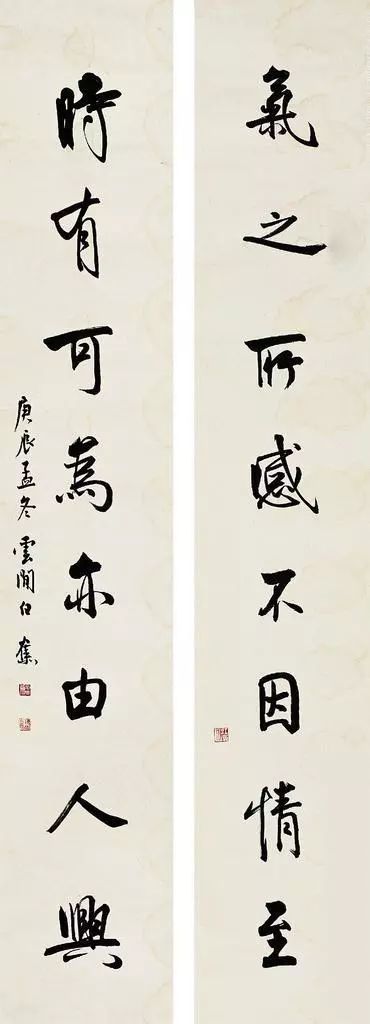 氣之所感不因情至
時有可為亦由人興
庚辰孟冬雲間白蕉